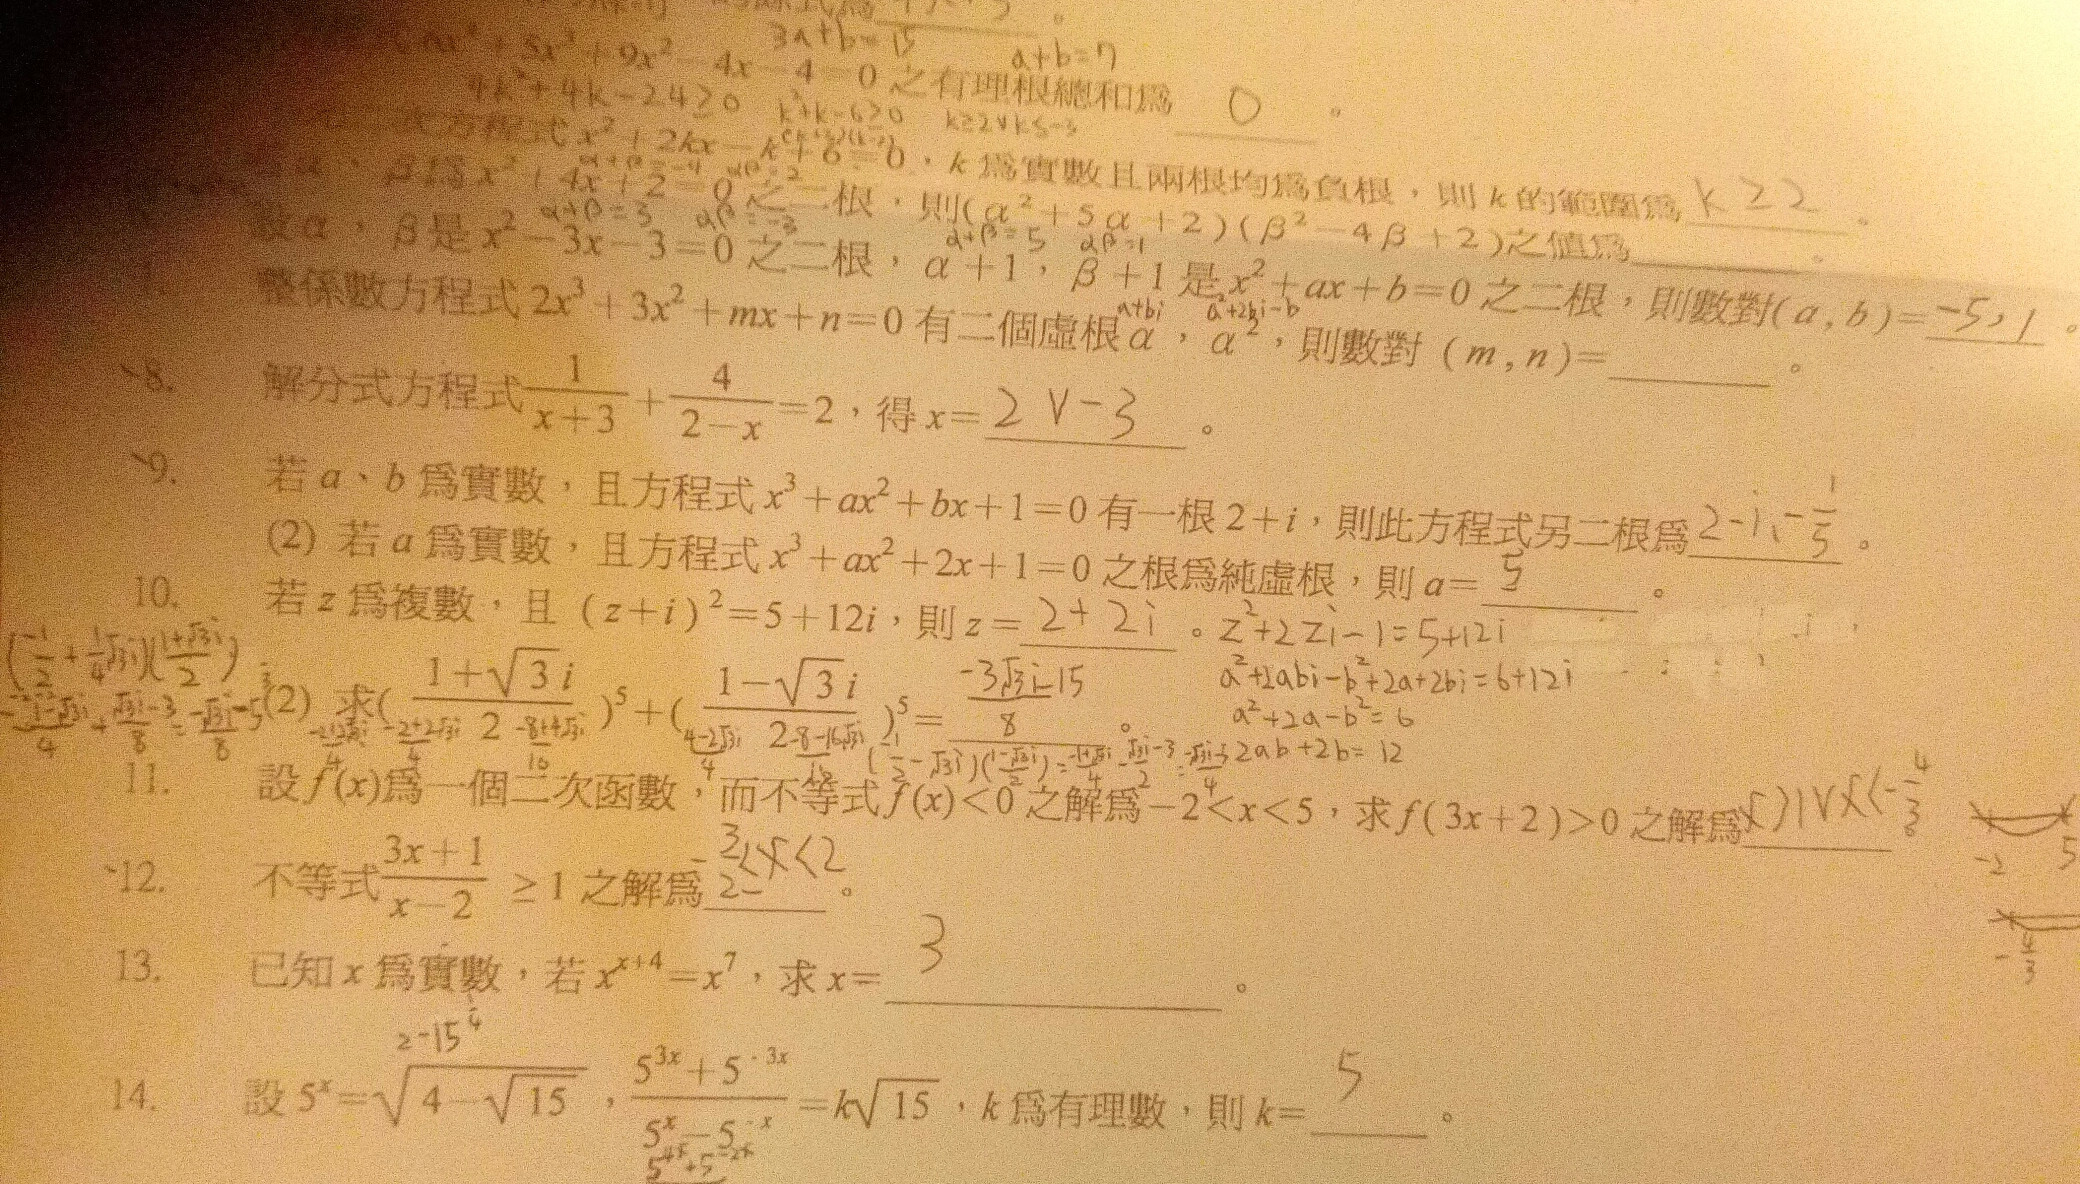 3a+b=15 a+b=7
+5x³+9x²-4x-4=0 之有理根總和為 0 。
4k²+4k-24≥0 k²+k-6≥0 k≥2∨k≤-3
次方程式 x²+2kx-k+6=0，k 為實數且兩根均為負根，則 k 的範圍為 k≥2 。
α+β=-4 αβ=2
β為 x²+4x+2=0 之二根，則(α²+5α+2)(β²-4β+2)之值為 。
α+β=3 αβ=-3 α+β=5 αβ=1
設α，β是 x²-3x-3=0 之二根，α+1，β+1 是 x²+ax+b=0 之二根，則數對(a,b)= -5,1 。
a+bi a²+2bi-b
整係數方程式 2x³+3x²+mx+n=0 有二個虛根 α，α²，則數對 (m,n)= 。
8. 解分式方程式 1/(x+3) + 4/(2-x) =2，得 x= 2∨-3 。
9. 若 a、b 為實數，且方程式 x³+ax²+bx+1=0 有一根 2+i，則此方程式另二根為 2-i、-1/5 。
(2) 若 a 為實數，且方程式 x³+ax²+2x+1=0 之根為純虛根，則 a= 5 。
10. 若 z 為複數，且 (z+i)²=5+12i，則 z= 2+2i 。 z²+2zi-1=5+12i
a²+2abi-b²+2a+2bi=6+12i
a²+2a-b²=6
2ab+2b=12
(2) 求( (1+√3i)/2 )⁵+( (1-√3i)/2 )⁵= (-3√3i-15)/8 。
11. 設 f(x)為一個二次函數，而不等式 f(x)<0 之解為-2<x<5，求 f(3x+2)>0 之解為 x>1∨x<-4/3
-2 5
-4/3
12. 不等式 (3x+1)/(x-2) ≥1 之解為 -3/2<x<2 。
13. 已知 x 為實數，若 x^(x+4)=x⁷，求 x= 3 。
14. 設 5ˣ=√(4-√15)，(5³ˣ+5⁻³ˣ)/(5ˣ-5⁻ˣ)=k√15，k 為有理數，則 k= 5 。